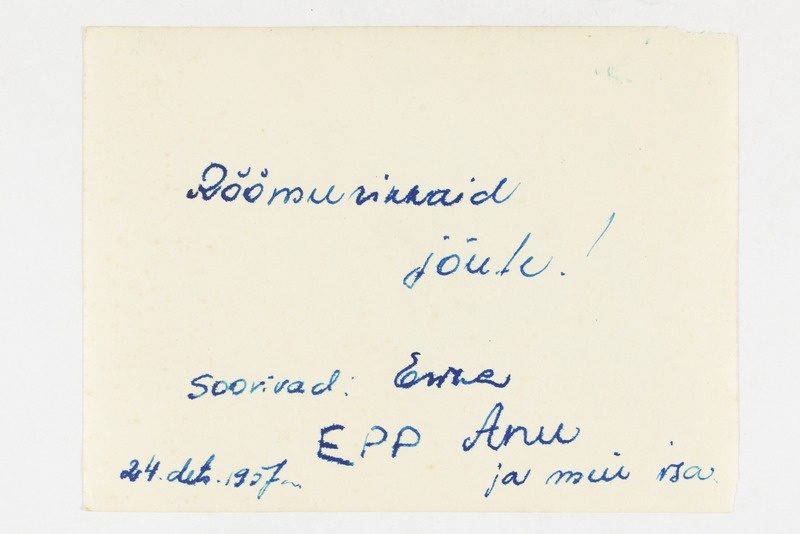 Rõõmurikkaid
jõule!
Soovivad: Enna
EPP Anu
24. dets. 1957. ja muu isa.